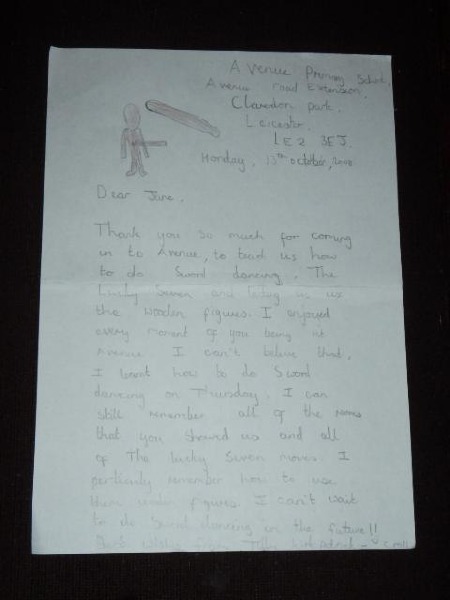 Avenue Primary School,
Avenue road Extension,
Clarendon park,
Leicester,
LE2 3EJ.
Monday, 13th October,
Dear Jane,
Thank you so much for coming
in to Avenue, to teach us how
to do Sword dancing, The
Lucky Seven and letting us use
the wooden figures. I enjoyed
every moment of you being at
Avenue. I can't believe that,
I learnt how to do Sword
dancing on Thursday. I can
still remember all of the moves
that you showed us and all
of The lucky Seven moves. I
particully remember how to use
them wooden figures. I can't wait
to do Sword dancing in the future!!